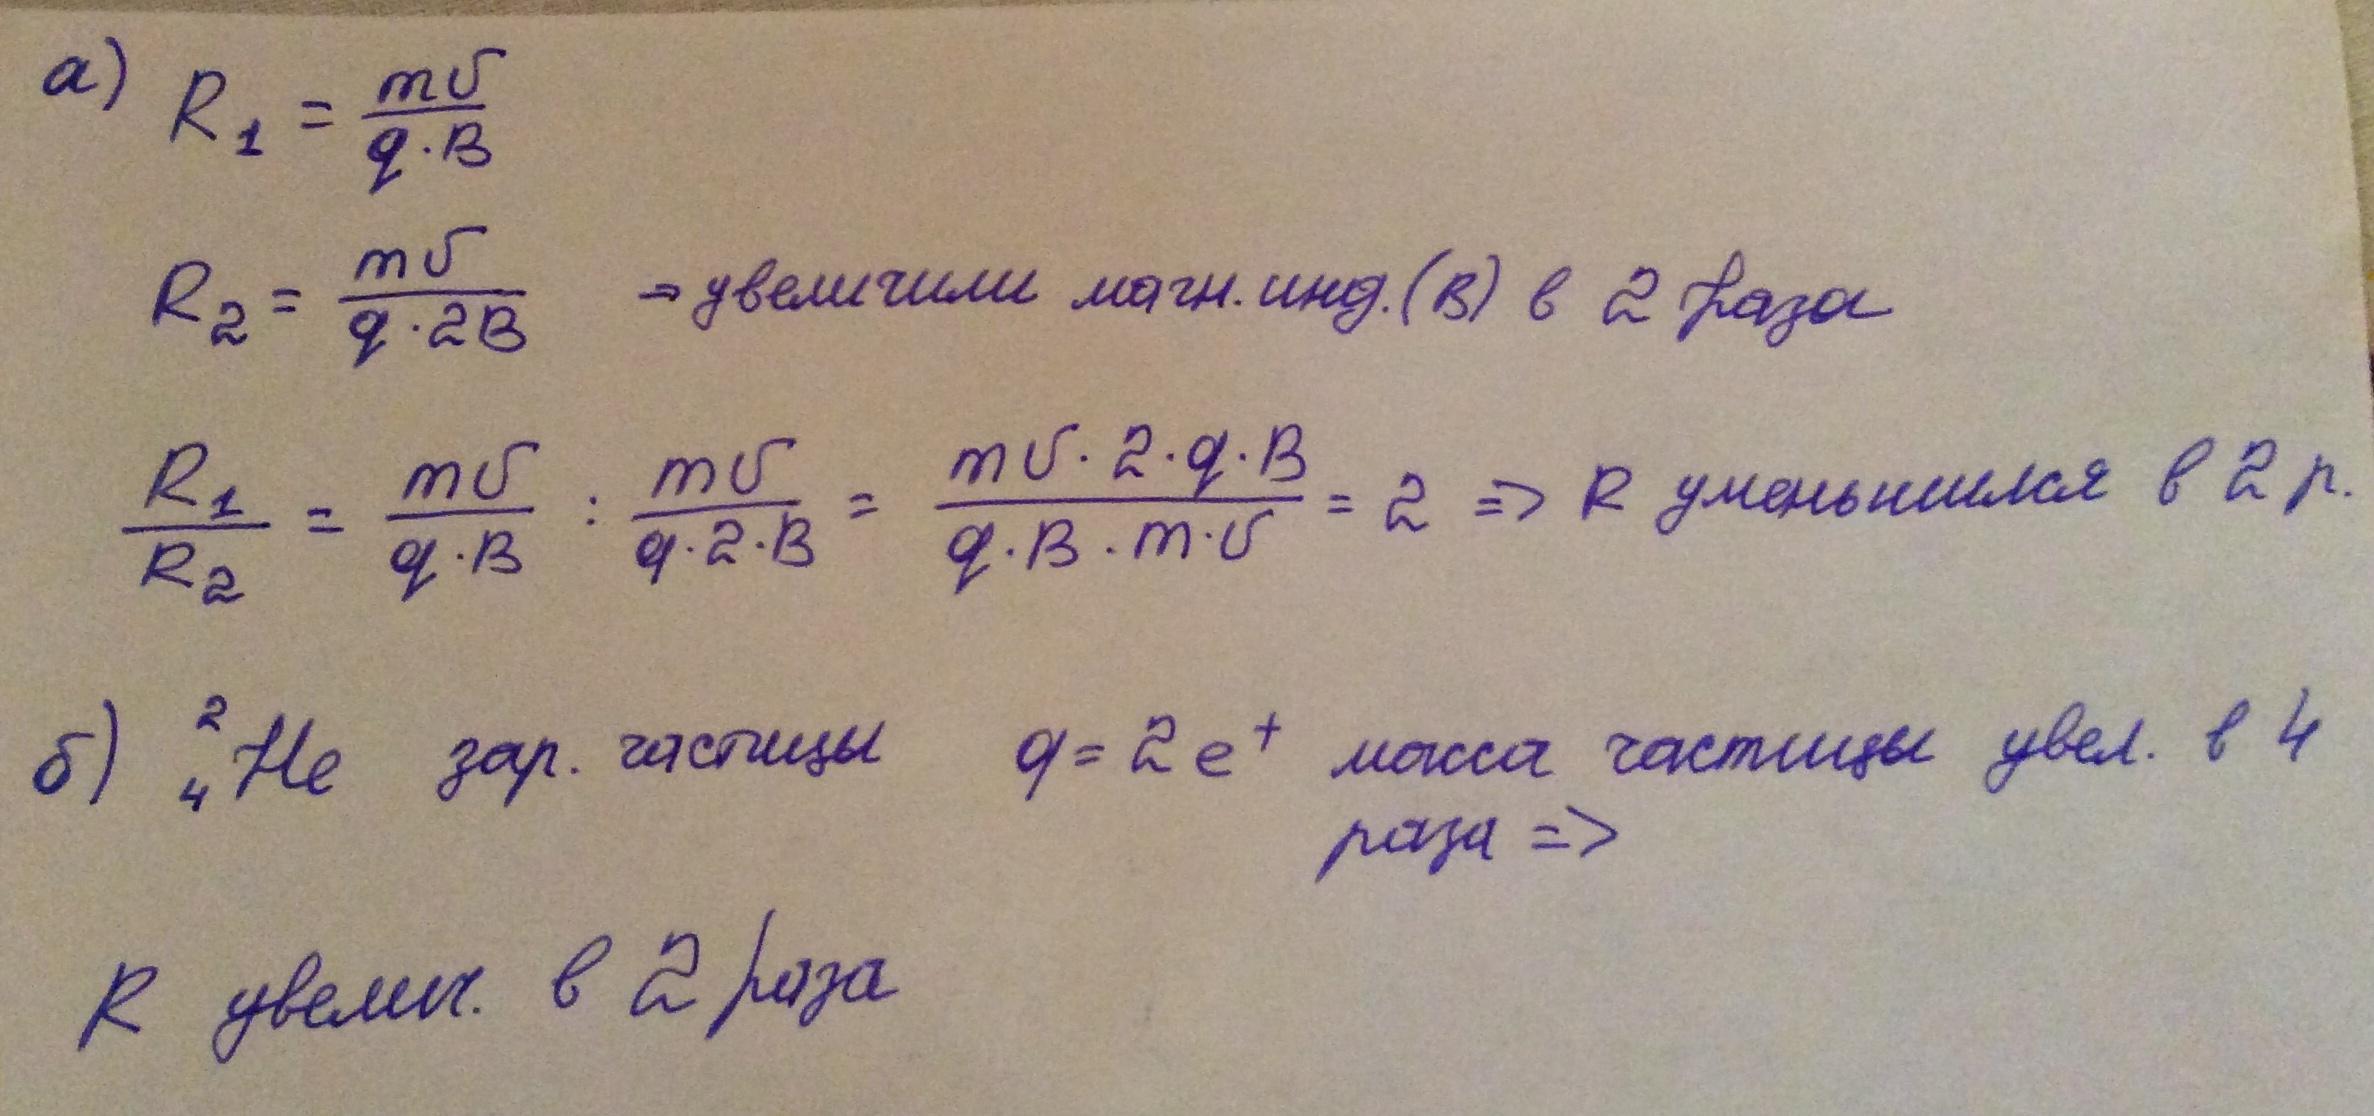 а) R₁ = mυ / q·B
R₂ = mυ / q·2B → увеличили магн. инд. (B) в 2 раза
R₁ / R₂ = mυ / q·B : mυ / q·2·B = mυ·2·q·B / q·B·m·υ = 2 => R уменьшился в 2 р.
б) ²₄He зар. частицы q = 2e⁺ масса частицы увел. в 4
раза =>
R увелич. в 2 раза